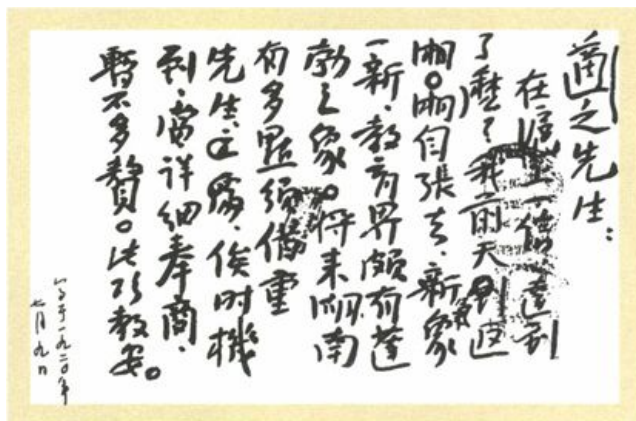 適之先生：
在滬上一信達到
了麼？我前天返
湘。湘自張去，氣象
一新，教育界頗有蓬
勃之象。將來湖南
有多點須借重
先生之處，俟時機
到，當詳細奉商，
暫不多贅。此頌教安。
寫于一九二〇年
七月九日